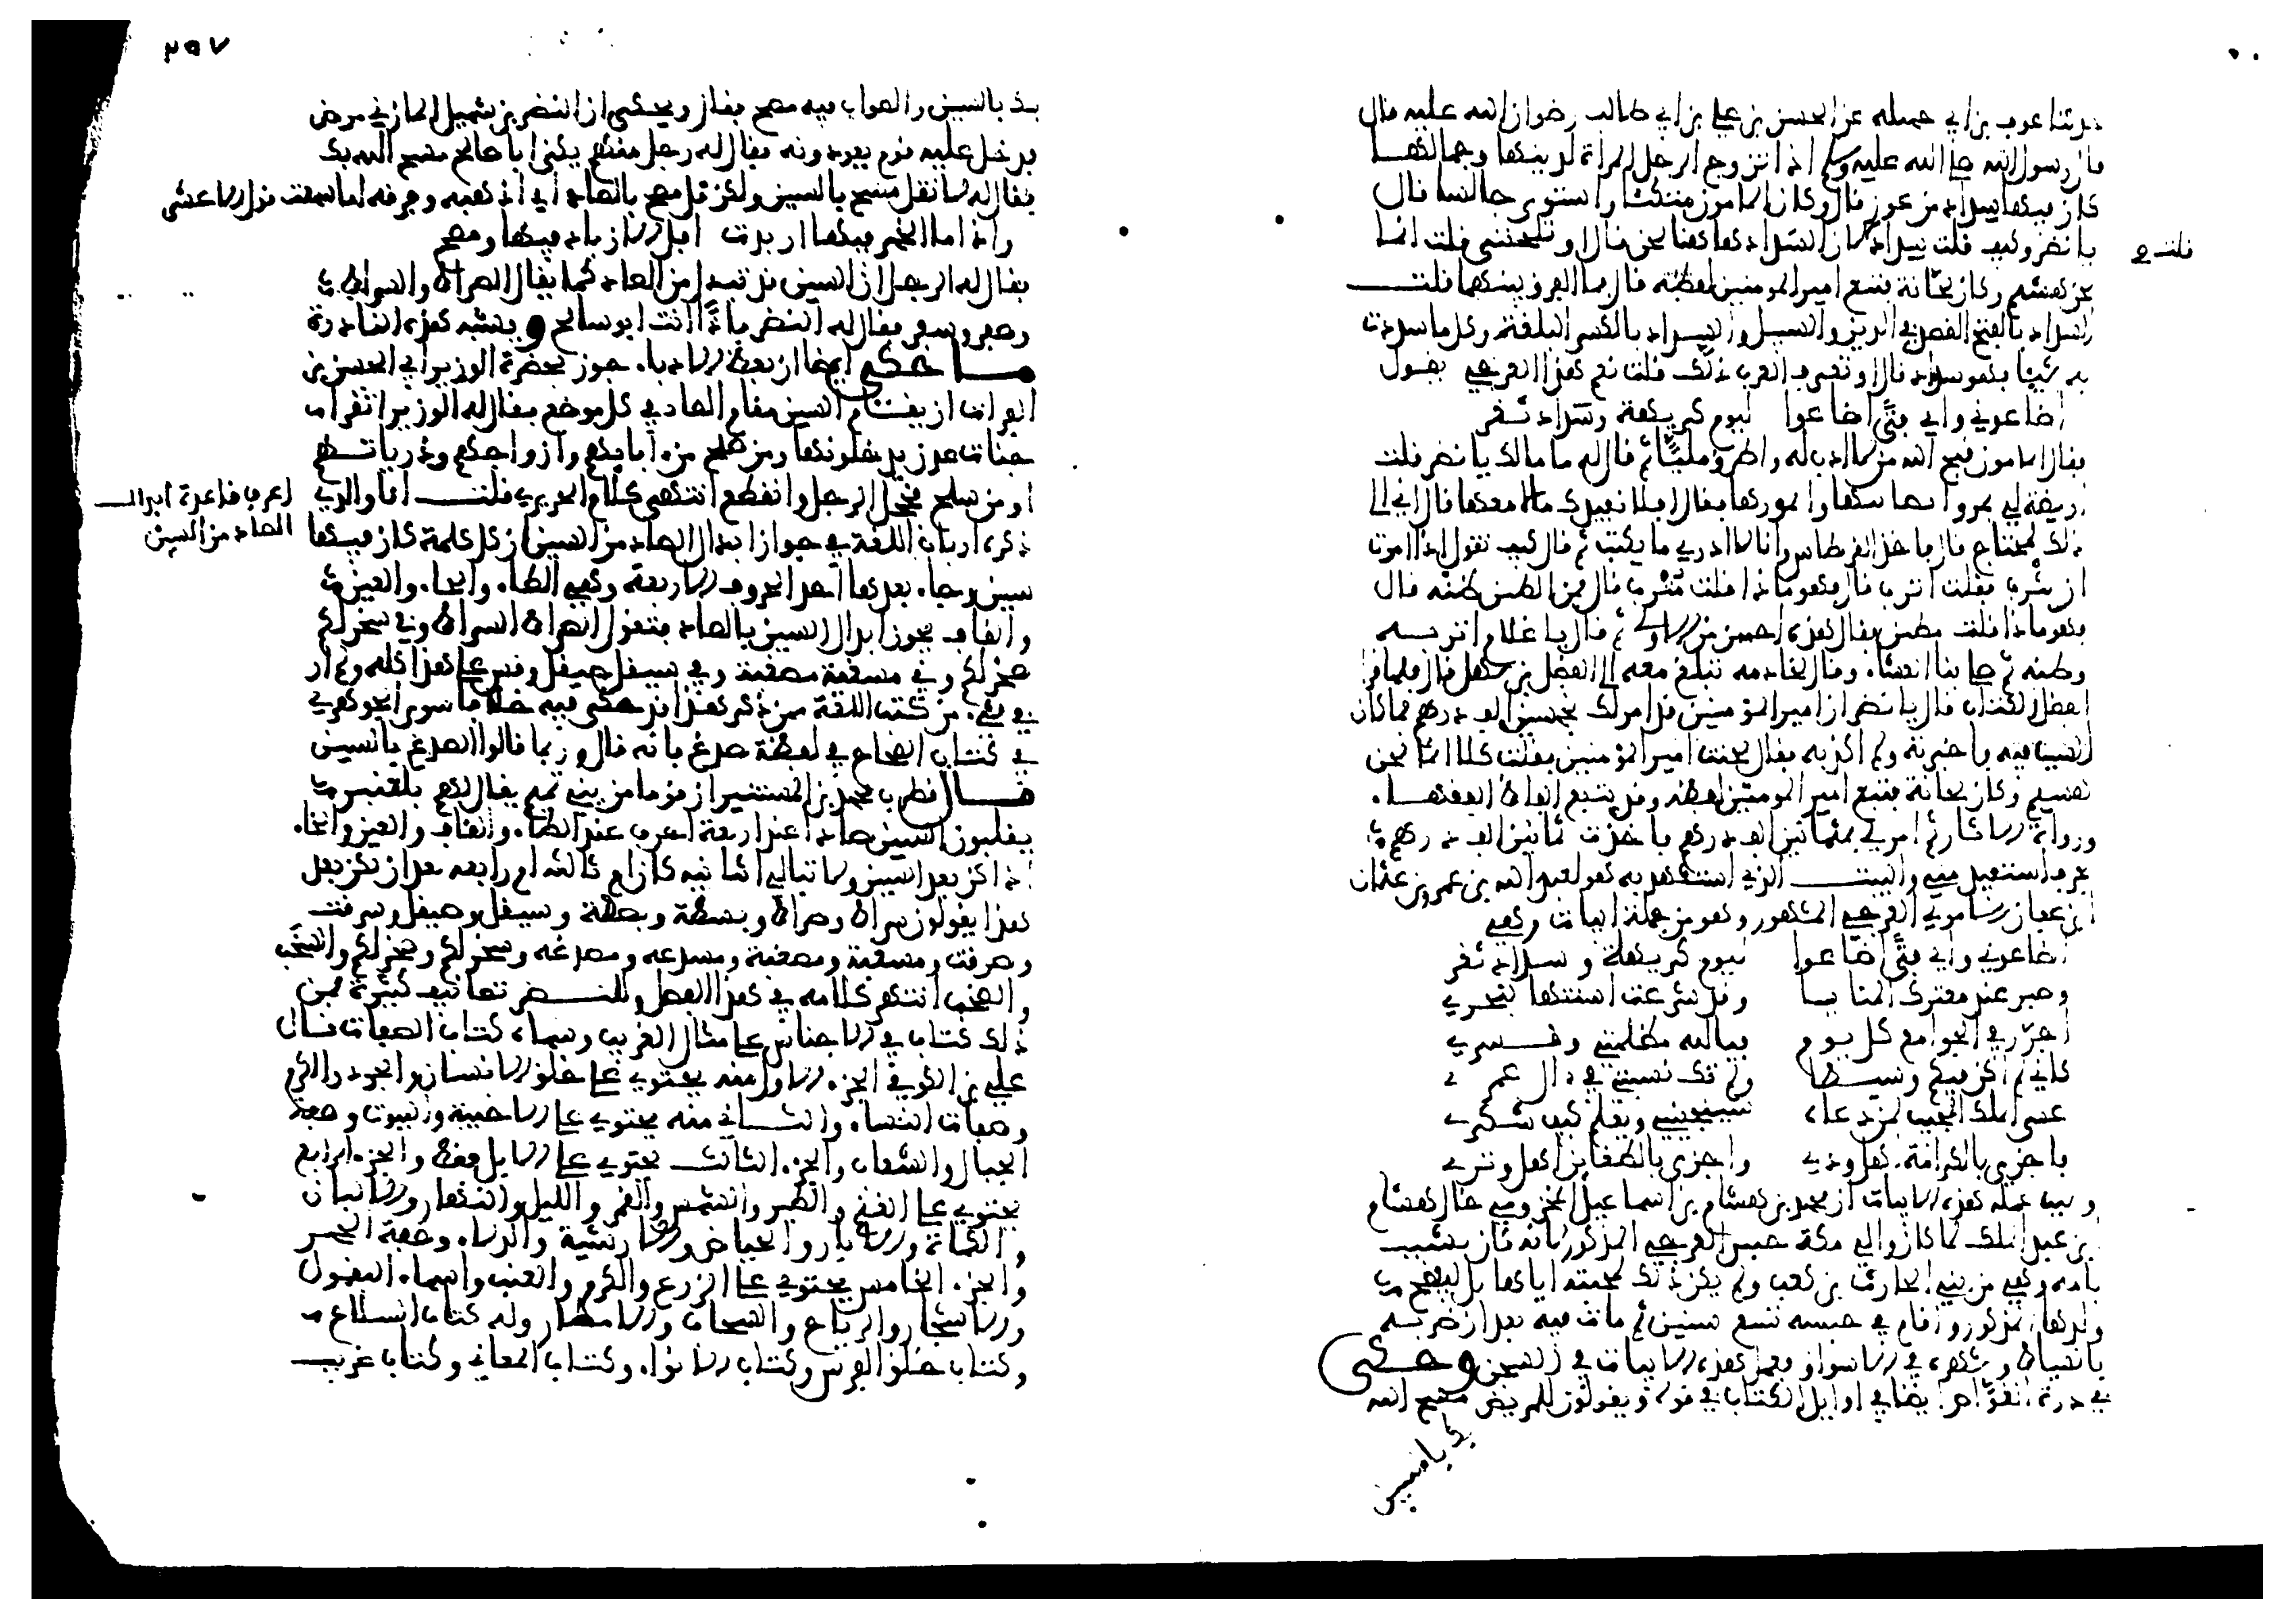 حدثنا عوف بن ابي جميله عن الحسن بن علي بن ابي طالب رضوان الله عليه قال
قال رسول الله صلى الله عليه وسلم اذا تزوج الرجل المراة لدينها وجمالها
كان فيها سداد من عوز قال وكان المامون متكئا واستوى جالسا قال
يا نضر وكيف قلت سداد لان السداد هاهنا لحن قال او تلحنني قلت انما
قلت
لحن هشيم وكان لحانة فتتبع امير المومنين لفظه قال فما الفرق بينهما قلت
السداد بالفتح القصد في الدين والسبيل والسداد بالكسر البلغة وكل ما سددت
به شيئا فهو سداد قال او تعرف العرب ذلك قلت نعم هذا العرجي يقول
اضاعوني واي فتى اضاعوا ليوم كريهة وسداد ثغر
فقال المامون قبح الله من لا ادب له واطرق مليّا ثم قال له ما مالك يا نضر قلت
اريضة لي بمرو اتصابها واتمزرها فقال افلا نفيدك مالا معها قال اني الى
ذلك لمحتاج قال فاخذ القرطاس وانا لا ادري ما يكتب ثم قال كيف تقول اذا امرت
ان يترب فقلت اتربه قال فهو ماذا قلت مترب قال فمن الطين قلت طنه قال
فهو ماذا قلت مطين فقال هذه احسن من الاولى ثم قال يا غلام اتربه
وطنه ثم صلى بنا العشاء وقال لخادمه تبلغ معه الى الفضل بن سهل قال فلما قرا
الفضل الكتاب قال يا نضر ان امير المؤمنين قد امر لك بخمسين الف درهم فما كان
السبب فيه فاخبرته ولم اكذبه فقال لحنت امير المؤمنين فقلت كلا انما لحن
هشيم وكان لحانة فتتبع امير المومنين لفظه وقد تتبع الفاظ الفقهاء
ورواة الاثار ثم امر لي بثلاثين الف درهم فاخذت ثمانين الف درهم
بحرف استفيد مني والبيت الذي استشهد به هو لعبد الله بن عمرو بن عثمان
ابن عفان الاموي العرجي المشهور وهو من جملة ابيات وهي
اضاعوني واي فتى اضاعوا ليوم كريهة وسداد ثغر
وصبر عند معترك المنايا وقد شرعت اسنتها بنحري
اجرّر في الجوامع كل يوم فيا لله مظلمتي وقسري
كاني لم اكن فيهم وسيطا ولم تك نسبتي في ال عمرو
عسى الملك المجيب لمن دعاه سينجيني ويعلم كيف شكري
فاجزى بالكرامة اهل ودي واجزي بالضغاين اهل وتري
وسبب عمله هذه الابيات ان محمد بن هشام بن اسماعيل المخزومي خال هشام
ابن عبد الملك لما كان والي مكة حبس العرجي المذكور لانه كان يشبب
بامه وهي من بني الحارث بن كعب ولم يكن ذلك لمحبته اياها بل ليفضح
ولدها المذكور واقام في حبسه تسع سنين ثم مات فيه بعد ان ضربه
بالسياط وشهره في الاسواق وعمل هذه الابيات في السجن وحكى
في درة الغواص ايضا في اوايل الكتاب في قوله ويقولون للمريض مسح الله
بك بالسين
٢٥٧
بك بالسين والصواب فيه مصح فقال ويحكى ان النضر بن شميل المازني مرض
فدخل عليه قوم يعودونه فقال له رجل منهم يكنى ابا صالح مسح الله بك
فقال له لا تقل مسح بالسين ولكن قل مصح بالصاد اي اذهبه وفرقه اما سمعت قول الاعشى
واذا ما الخمر فيها ازبدت افل الازباد فيها ومصح
فقال له الرجل ان السين قد تبدل من الصاد كما يقال الصراط والسراط
وصقر وسقر فقال له النضر فاذًا انت ابو سالح ويشبه هذه النادرة
ما حكى ايضا ان بعض الادباء جوز بحضرة الوزير ابي الحسن بن
الفرات ان يقام السين مقام الصاد في كل موضع فقال له الوزير اتقرا
جنات عدن يدخلونها ومن صلح من ابايهم وازواجهم وذرياتهم
او من سلح فخجل الرجل وانقطع انتهى كلام الحريري قلت انا والذي
اعرف قاعدة ابدال
الصاد من السين
ذكره ارباب اللغة في جواز ابدال الصاد من السين ان كل كلمة كان فيها
سين وجاء بعدها احد الحروف الاربعة وهي الطاء والخاء والغين
والقاف يجوز ابدال السين بالصاد فتقول الصراط السراط وفي سخر لكم
صخر لكم وفي مسغبة مصغبة وفي سيقل صيقل وقس على هذا كله ولم ار
في شيء من كتب اللغة من ذكر هذا وحكى فيه خلافا سوى الجوهري
في كتاب الصحاح في لفظة صدغ فانه قال وربما قالوا السدغ بالسين
قال قطرب محمد بن المستنير ان قوما من بني تميم يقال لهم بلعنبر
يقلبون السين صادا عند اربعة احرف عند الطاء والقاف والغين والخاء
اذا كن بعد السين ولا تبالي اثانيه كان ام ثالثه ام رابعه بعد ان تكن بعد
هذا يقولون سراط وصراط وبسطة وبصطة وسيقل وصيقل وسرقت
وصرقت ومسغبة ومصغبة ومسدغه ومصدغه وسخر لكم وصخر لكم والسخب
والصخب انتهى كلامه في هذا الفصل وللنضر تصانيف كثيرة فمن
ذلك كتاب في الاجناس على مثال الغريب وسماه كتاب الصفات قال
علي بن الكوفي الجزء الاول منه يحتوي على خلق الانسان والجود والكرم
وصفات النساء والثاني منه يحتوي على الاخبية والبيوت وصفة
الجبال والشعاب والجزء الثالث يحتوي على الابل فقط والجزء الرابع
يحتوي على الغنم والطير والشمس والقمر والليل والنهار والالبان
والكماة والابار والحياض والارشية والدلاء وصفة الخمر
والجزء الخامس يحتوي على الزرع والكرم والعنب واسماء البقول
والاشجار والرياح والسحاب والامطار وله كتاب السلاح
وكتاب خلق الفرس وكتاب الانواء وكتاب المعاني وكتاب غريب